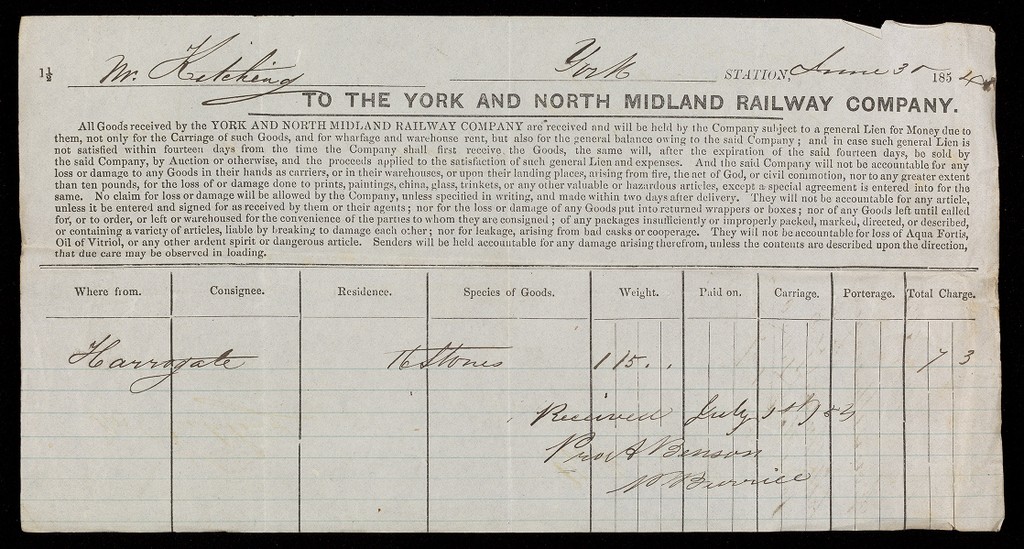 1½ Mr. Kitching York STATION, June 30 1854
TO THE YORK AND NORTH MIDLAND RAILWAY COMPANY.
All Goods received by the YORK AND NORTH MIDLAND RAILWAY COMPANY are received and will be held by the Company subject to a general Lien for Money due to
them, not only for the Carriage of such Goods, and for wharfage and warehouse rent, but also for the general balance owing to the said Company; and in case such general Lien is
not satisfied within fourteen days from the time the Company shall first receive the Goods, the same will, after the expiration of the said fourteen days, be sold by
the said Company, by Auction or otherwise, and the proceeds applied to the satisfaction of such general Lien and expenses. And the said Company will not be accountable for any
loss or damage to any Goods in their hands as carriers, or in their warehouses, or upon their landing places, arising from fire, the act of God, or civil commotion, nor to any greater extent
than ten pounds, for the loss of or damage done to prints, paintings, china, glass, trinkets, or any other valuable or hazardous articles, except a special agreement is entered into for the
same. No claim for loss or damage will be allowed by the Company, unless specified in writing, and made within two days after delivery. They will not be accountable for any article,
unless it be entered and signed for as received by them or their agents; nor for the loss or damage of any Goods put into returned wrappers or boxes; nor of any Goods left until called
for, or to order, or left or warehoused for the convenience of the parties to whom they are consigned; of any packages insufficiently or improperly packed, marked, directed, or described,
or containing a variety of articles, liable by breaking to damage each other; nor for leakage, arising from bad casks or cooperage. They will not be accountable for loss of Aqua Fortis,
Oil of Vitriol, or any other ardent spirit or dangerous article. Senders will be held accountable for any damage arising therefrom, unless the contents are described upon the direction,
that due care may be observed in loading.
Where from. Consignee. Residence. Species of Goods. Weight. Paid on. Carriage. Porterage. Total Charge.
Harrogate Stones 1 15 . . 7 3
Received July 1st
Benson